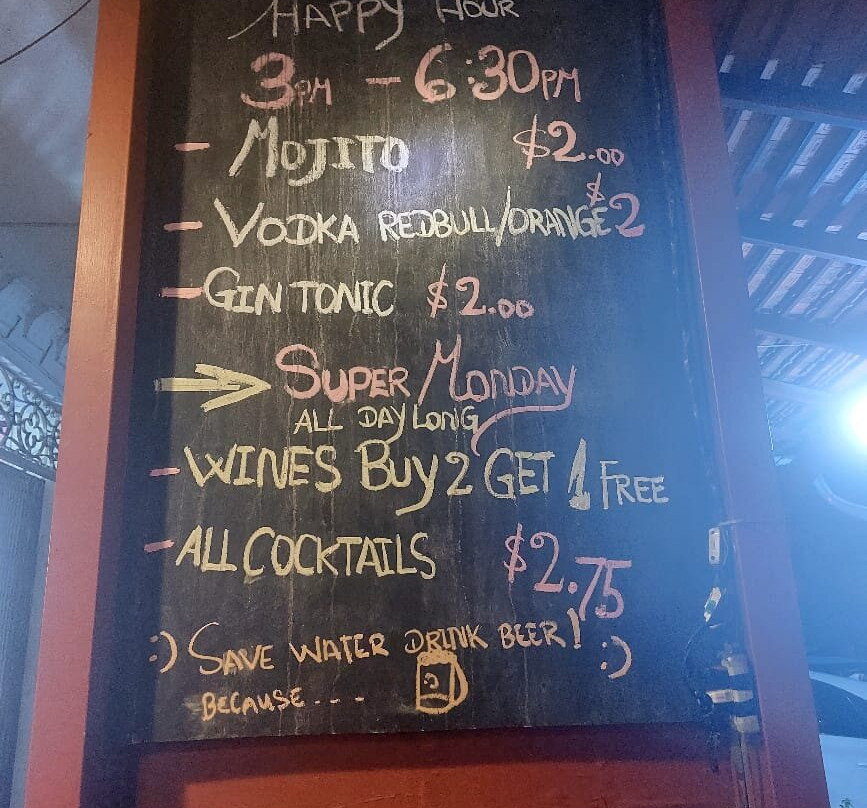 HAPPY HOUR
3PM - 6:30PM
- MOJITO $2.00
- VODKA REDBULL/ORANGE $2
- GIN TONIC $2.00
→ SUPER MONDAY
ALL DAY LONG
- WINES BUY 2 GET 1 FREE
- ALL COCKTAILS $2.75
:) SAVE WATER DRINK BEER! :)
BECAUSE - - -